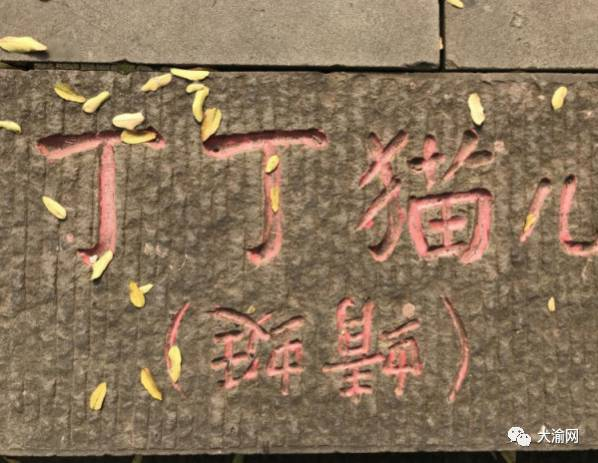 丁丁猫儿
(蜻蜓)
大渝网